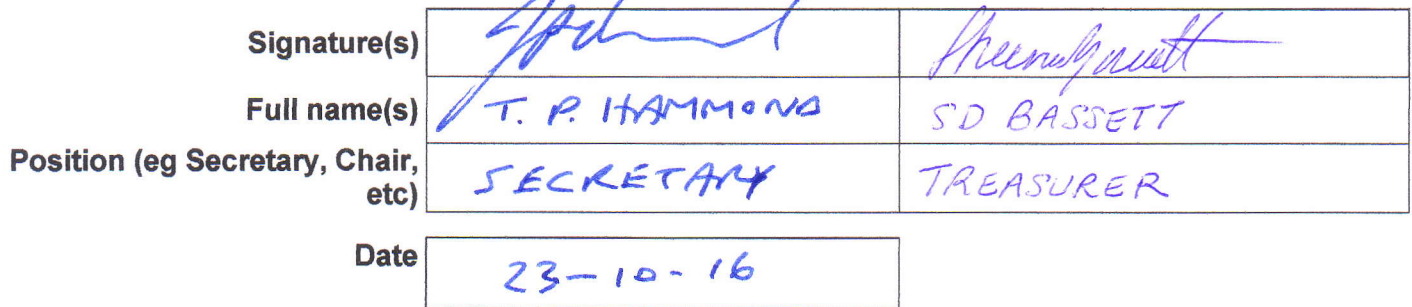 Signature(s)
Full name(s) T. P. HAMMOND SD BASSETT
Position (eg Secretary, Chair, etc) SECRETARY TREASURER
Date 23-10-16